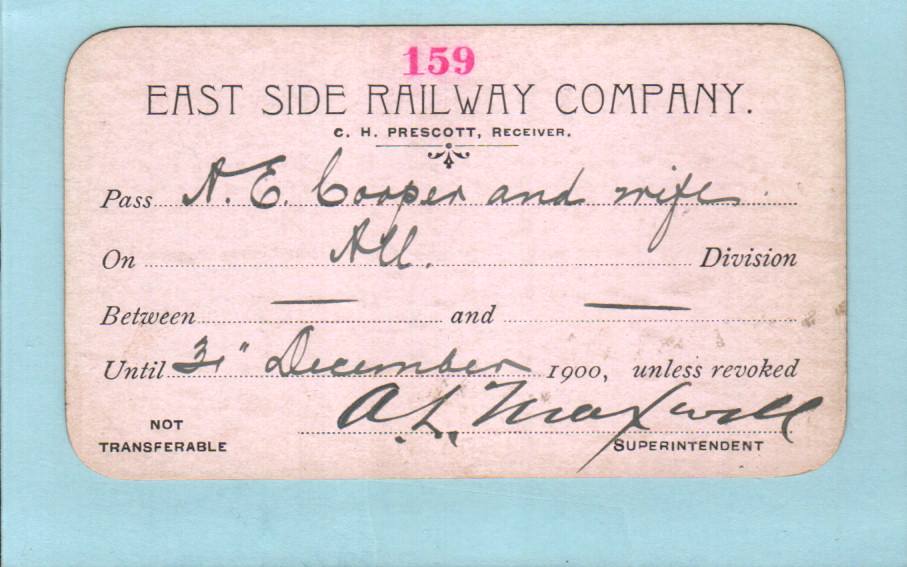 159
EAST SIDE RAILWAY COMPANY.
C. H. PRESCOTT, RECEIVER.
Pass A. E. Cooper and wife
On All. Division
Between — and —
Until 31" December 1900, unless revoked
A. L. Maxwell
NOT TRANSFERABLE
SUPERINTENDENT